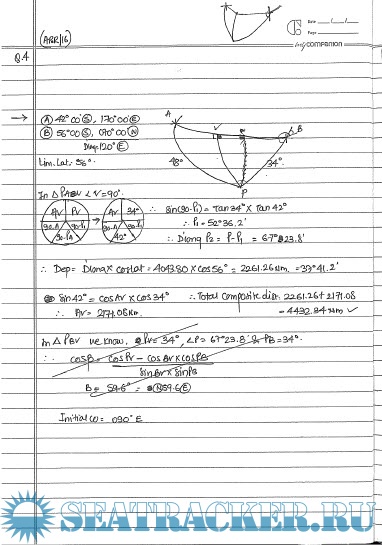 Date / /
Page
my companion
(APR/16)
Q.4
→ (A) 42°00'(S), 170°00'(E)
(B) 56°00'(S), 070°00'(W)
Dlong: 120°(E)
Lim. Lat: 56°
A
V
B
48°
34°
P
In Δ PABV ∠V = 90°
AV PV
90-A 90-P1
90-PA
→
AV 34°
90-A 90-P1
42°
∴ Sin(90-P1) = Tan34° x Tan42°
∴ P1 = 52°36.2'
∴ Dlong P2 = P-P1 = 67°23.8'
∴ Dep = Dlong x cos Lat = 4043.80 x cos56° = 2261.26nm. = 37°41.2'
Sin42° = cosAV x cos34°
∴ Total Composite dis. 2261.26 + 2171.08
∴ AV = 2171.08m
= 4432.34nm ✓
In Δ PBV we know, PV = 34°, ∠P = 67°23.8' & PB = 34°.
∴ cosB = cosPV - cosBV x cosPB
SinBV x SinPB
B = 59.6° = (N)59.6(E)
Initial co = 090° E
SEATRACKER.RU